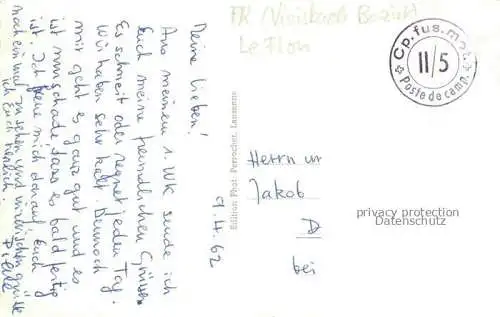 FR
Le Flon
Cp. fus. mont.
II/5
Poste de camp.
9.4.62
Meine Lieben!
Aus meinem 1. WK sende ich
Euch meine freundlichen Grüsse.
Es schneit oder regnet jeden Tag.
Wir haben sehr kalt. Dennoch
mir geht es ganz gut und es
ist nur schade dass es bald fertig
ist. Ich freue mich darauf Euch
noch einmal zu sehen und inzwischen grüsse
ich Euch herzlich.
Pierre
Edition Phot. Perrochet, Lausanne
Herrn
Jakob
bei
privacy protection
Datenschutz